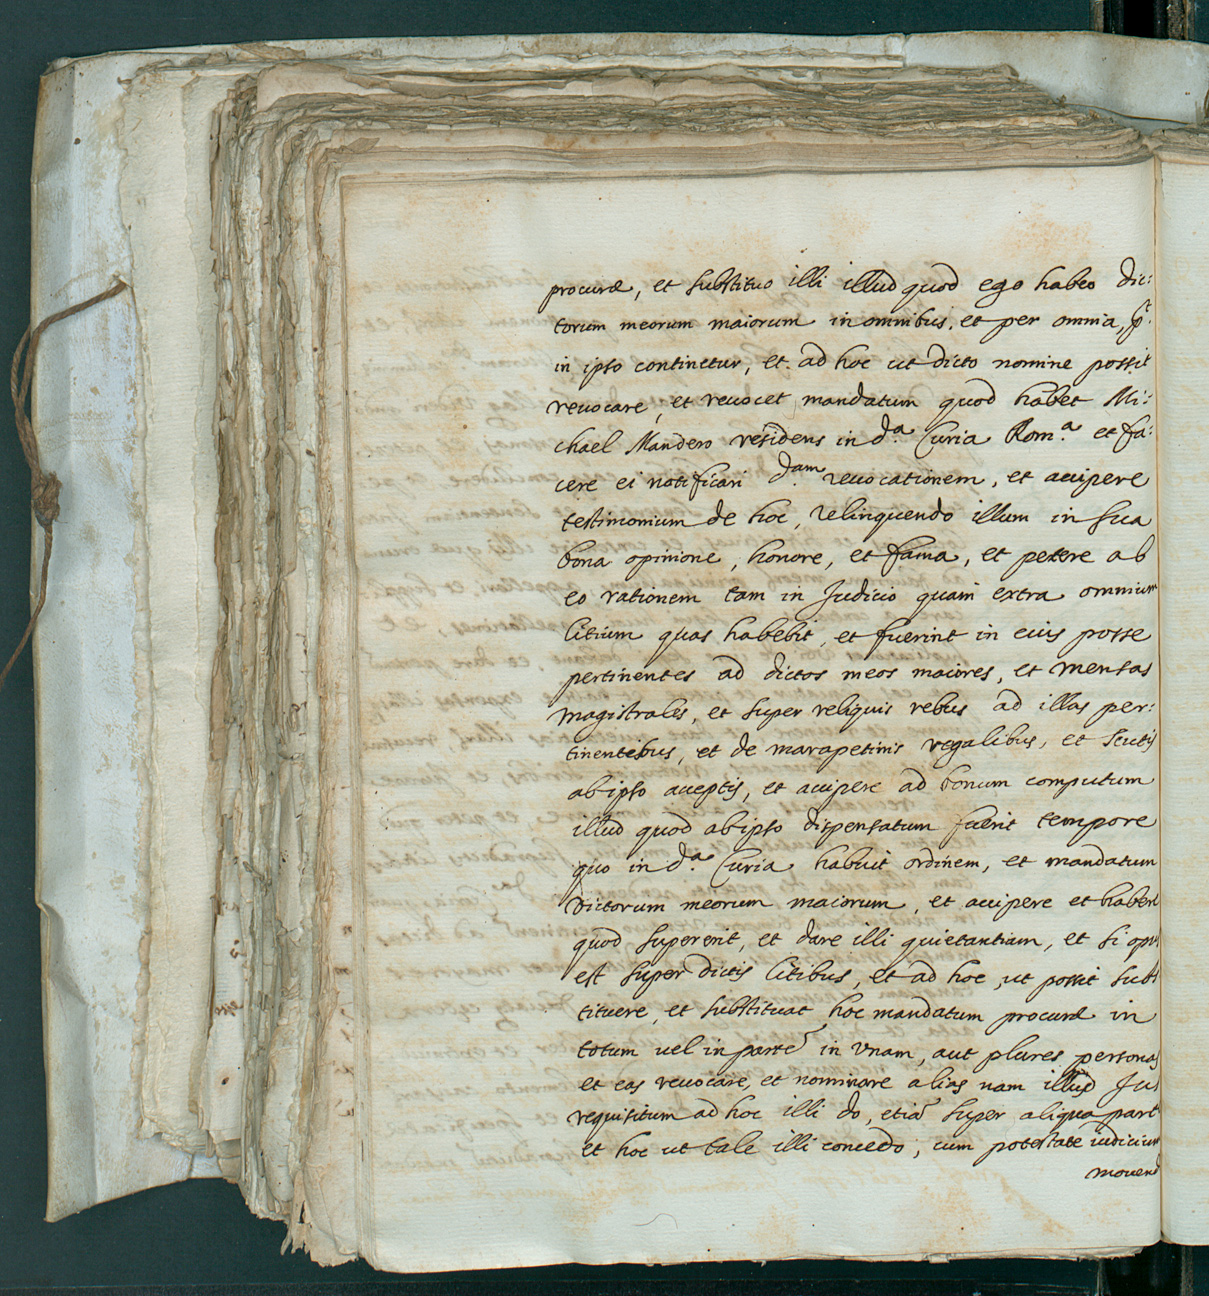 procuræ, et substituo illi illud quod ego habeo dic:
torum meorum maiorum in omnibus, et per omnia, p.t
in ipso continetur, et ad hoc ut dicto nomine possit
revocare, et revocet mandatum quod habet Mi:
chael Mandero residens in d.a Curia Rom.a et fa:
cere ei notificari d.am revocationem, et accipere
testimonium de hoc, relinquendo illum in sua
bona opinione, honore, et fama, et petere ab
eo rationem tam in Judicio quam extra omnium
litium quas habebit, et fuerint in eius posse
pertinentes ad dictos meos maiores, et mensas
magistrales, et super reliquis rebus ad illas per:
tinentibus, et de marapetinis regalibus, et scutis
ab ipso acceptis, et accipere ad bonum computum
illud quod ab ipso dispensatum fuerit tempore
quo in d.a Curia habuit ordinem, et mandatum
dictorum meorum maiorum, et accipere et habere
quod supererit, et dare illi quietantiam, et si opus
est super dictis litibus, et ad hoc, ut possit subs
tituere, et substituat hoc mandatum procuræ in
totum uel in parte in vnam, aut plures personas
et eas revocare, et nominare alias nam illud Jus
requisitum ad hoc illi do, etia super aliqua parte
et hoc ut tale illi concedo, cum potestate iudicium
mouend